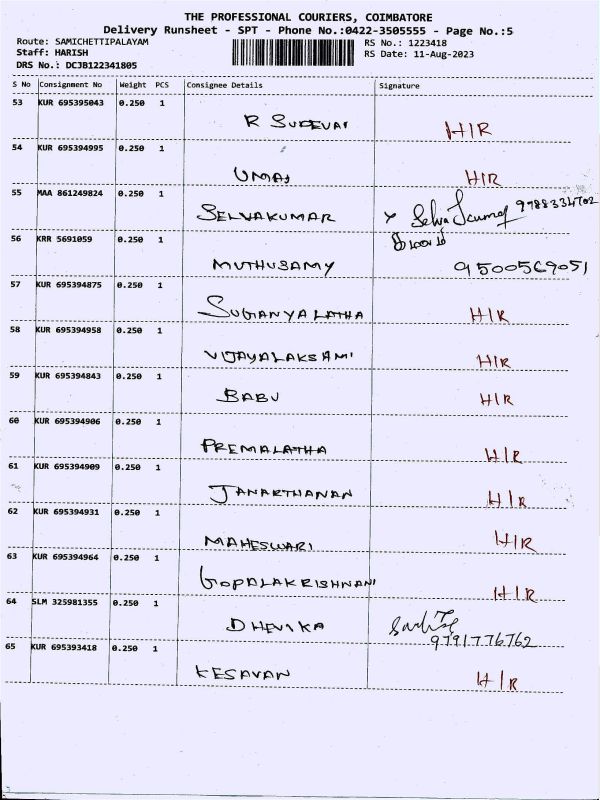 THE PROFESSIONAL COURIERS, COIMBATORE
Delivery Runsheet - SPT - Phone No.:0422-3505555 - Page No.:5
Route: SAMICHETTIPALAYAM RS No.: 1223418
Staff: HARISH RS Date: 11-Aug-2023
DRS No.: DCJB122341805
S No Consignment No Weight PCS Consignee Details Signature
53 KUR 695395043 0.250 1
R SUDEVAI H/R
54 KUR 695394995 0.250 1
UMAI H/R
55 MAA 861249824 0.250 1
SELVAKUMAR x Selva Kumar 9788334702
56 KRR 5691059 0.250 1
MUTHUSAMY 9500569051
57 KUR 695394875 0.250 1
SUGANYA LATHA H/R
58 KUR 695394958 0.250 1
VIJAYALAKSAMI H/R
59 KUR 695394843 0.250 1
BABU H/R
60 KUR 695394906 0.250 1
PREMALATHA H/R
61 KUR 695394909 0.250 1
JANARTHANAN H/R
62 KUR 695394931 0.250 1
MAHESWARI H/R
63 KUR 695394964 0.250 1
GOPALAKRISHNANI H/R
64 SLM 325981355 0.250 1
DHEVIKA
9791776762
65 KUR 695393418 0.250 1
KESAVAN H/R